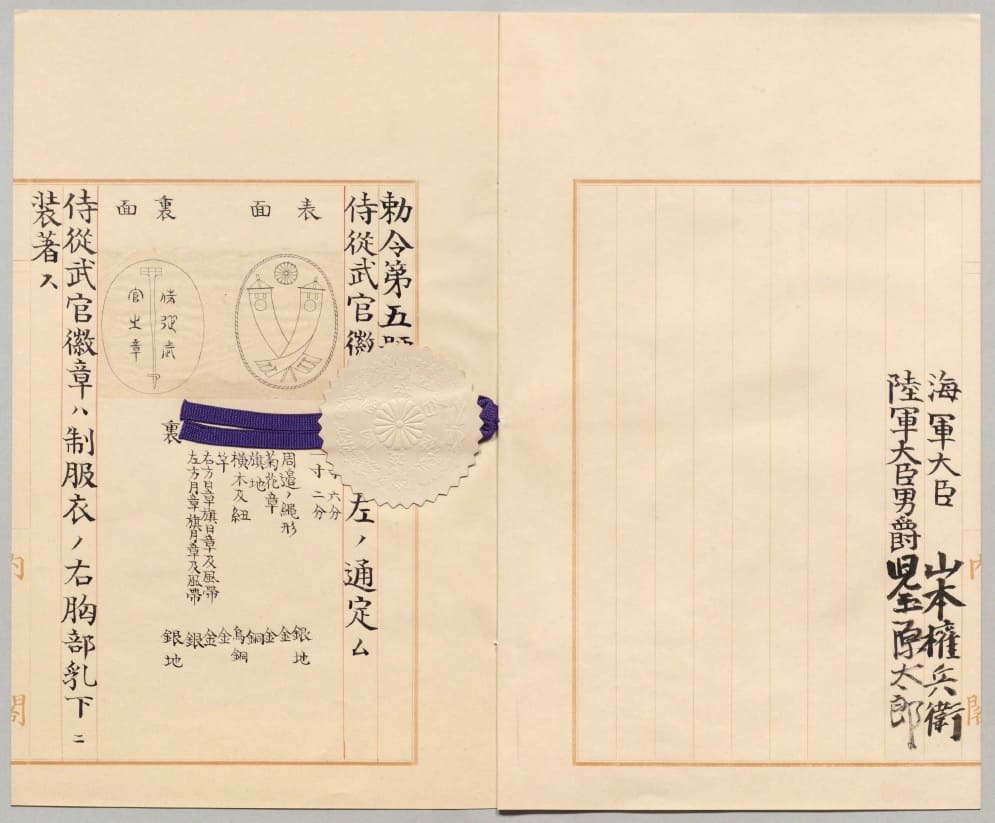 海軍大臣 山本權兵衛
陸軍大臣男爵 児玉源太郎
内閣
勅令第五
侍從武官徽 左ノ通定ム
表面
六分
一寸二分
銀地
周邊ノ繩形 金
菊花章 金
旗地 銅
横木及紐 烏銅
竿 金
右方日章旗日章及風帶 金
左方月章旗月章及風帶 銀
裏面
侍從武
官之章
裏 銀地
侍從武官徽章ハ制服衣ノ右胸部乳下ニ
装著ス
内閣